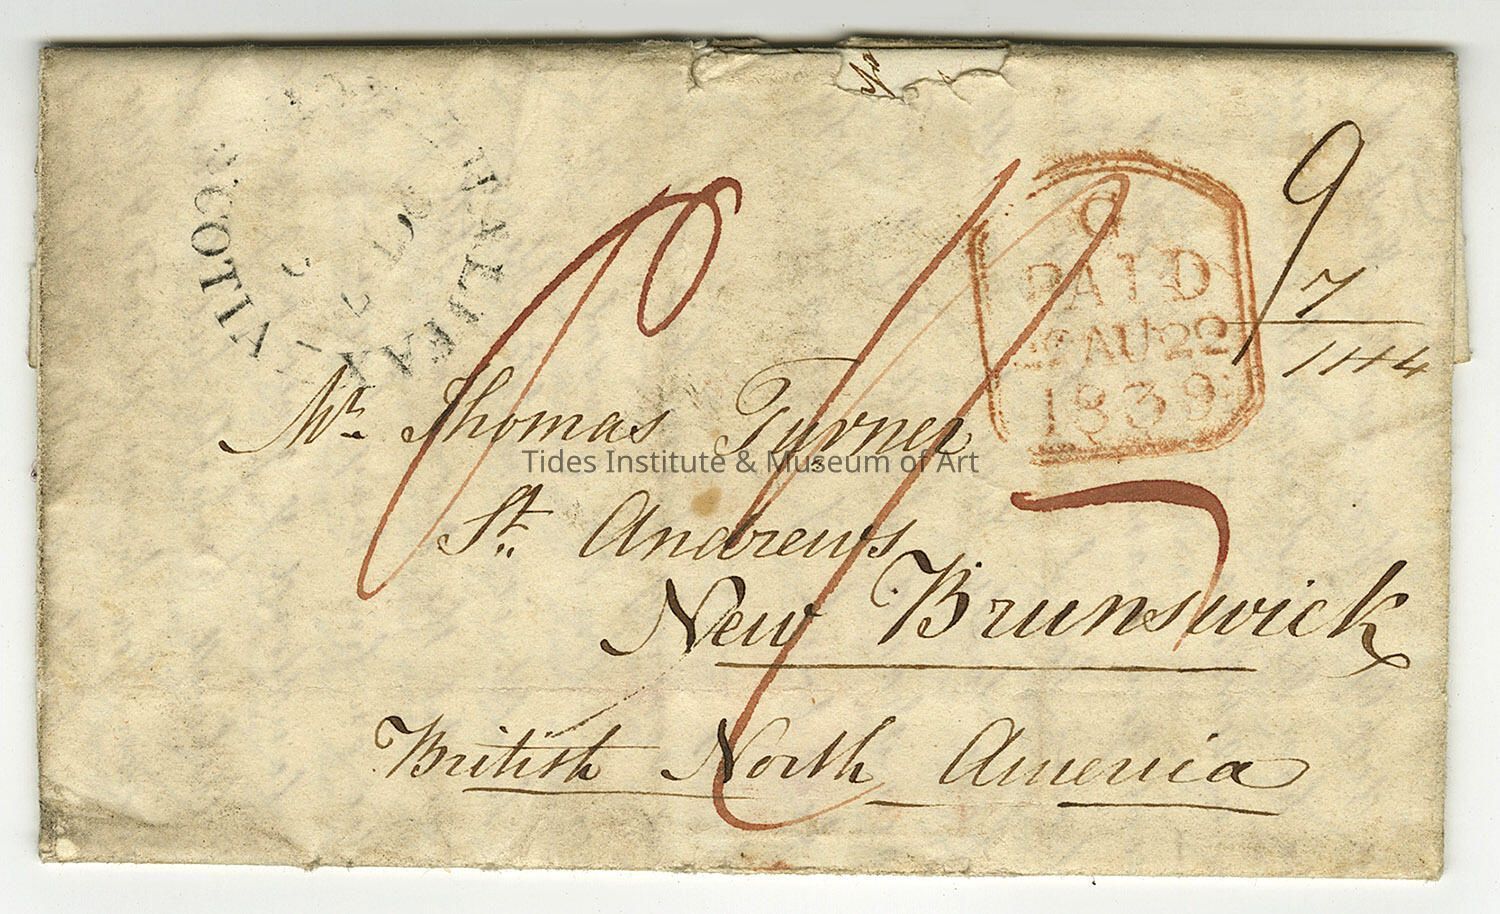 HALIFAX
SCOTIA
OCT
PAID
AU 22
1839
9
7
1/1 4
Mr. Thomas Turner
St. Andrews
New Brunswick
British North America
Tides Institute & Museum of Art